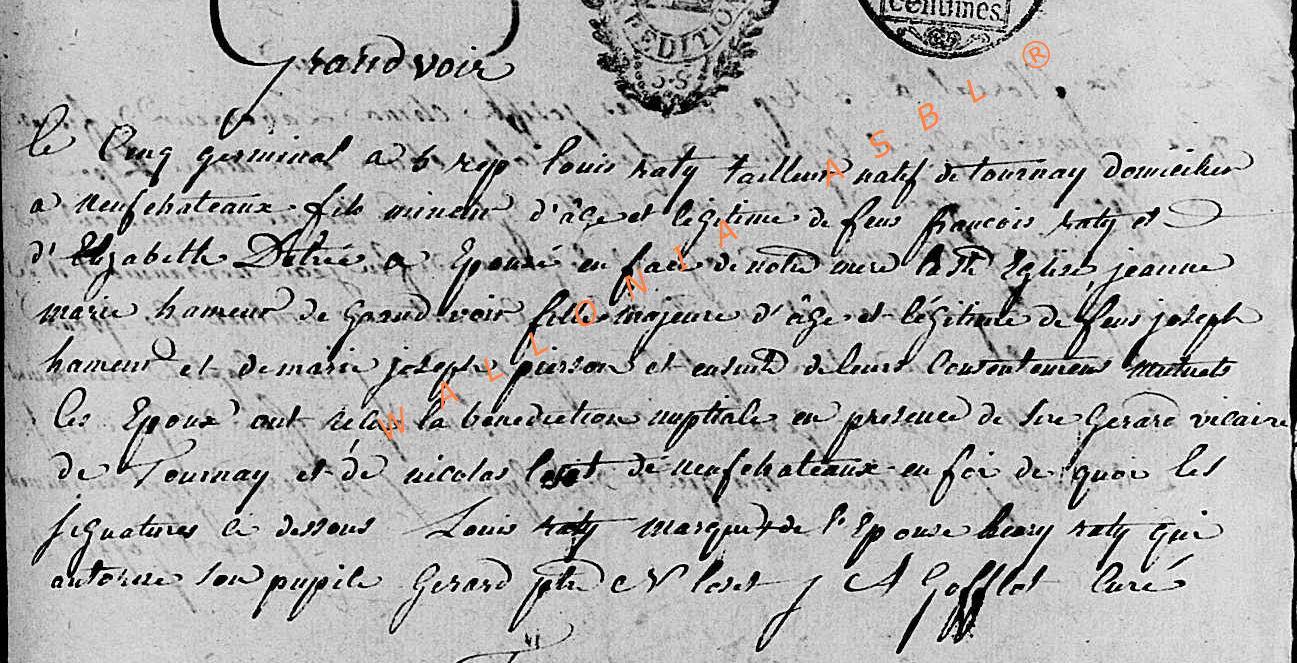 centimes
EDITION
S·S
grandvoir
le Cinq germinal a 5 rep louis raty tailleur natif de tournay domicilier
a neufchateaux fils mineur d'âge et légitime de feus françois raty et
d'Elizabeth Détrée a Epousé en face de notre mere la Ste Eglise jeanne
marie hameur de Grandvoir fille majeure d'âge et légitime de feus joseph
hameur et de marie joseph pierson et ensuite de leurs Consentemens mutuels
les Epoux ont reçu la bénédiction nuptiale en présence de Sre Gerard vicaire
de Tournay et de nicolas loset de neufchateaux en foi de quoi les
signatures ci dessous Louis raty marque + de l'Epouse henry raty qui
autorise son pupile Gerard ptre N loset J A Gofflot Curé
WALLONIA ASBL ®